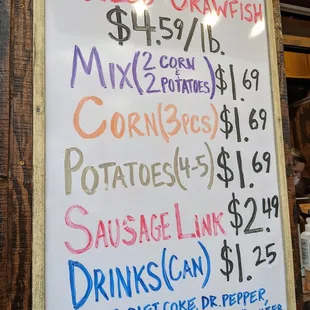 CRAWFISH
$4.59/lb.
MIX (2 CORN & 2 POTATOES) $1.69
CORN (3 PCS) $1.69
POTATOES (4-5) $1.69
SAUSAGE LINK $2.49
DRINKS (CAN) $1.25
DIET COKE, DR. PEPPER,